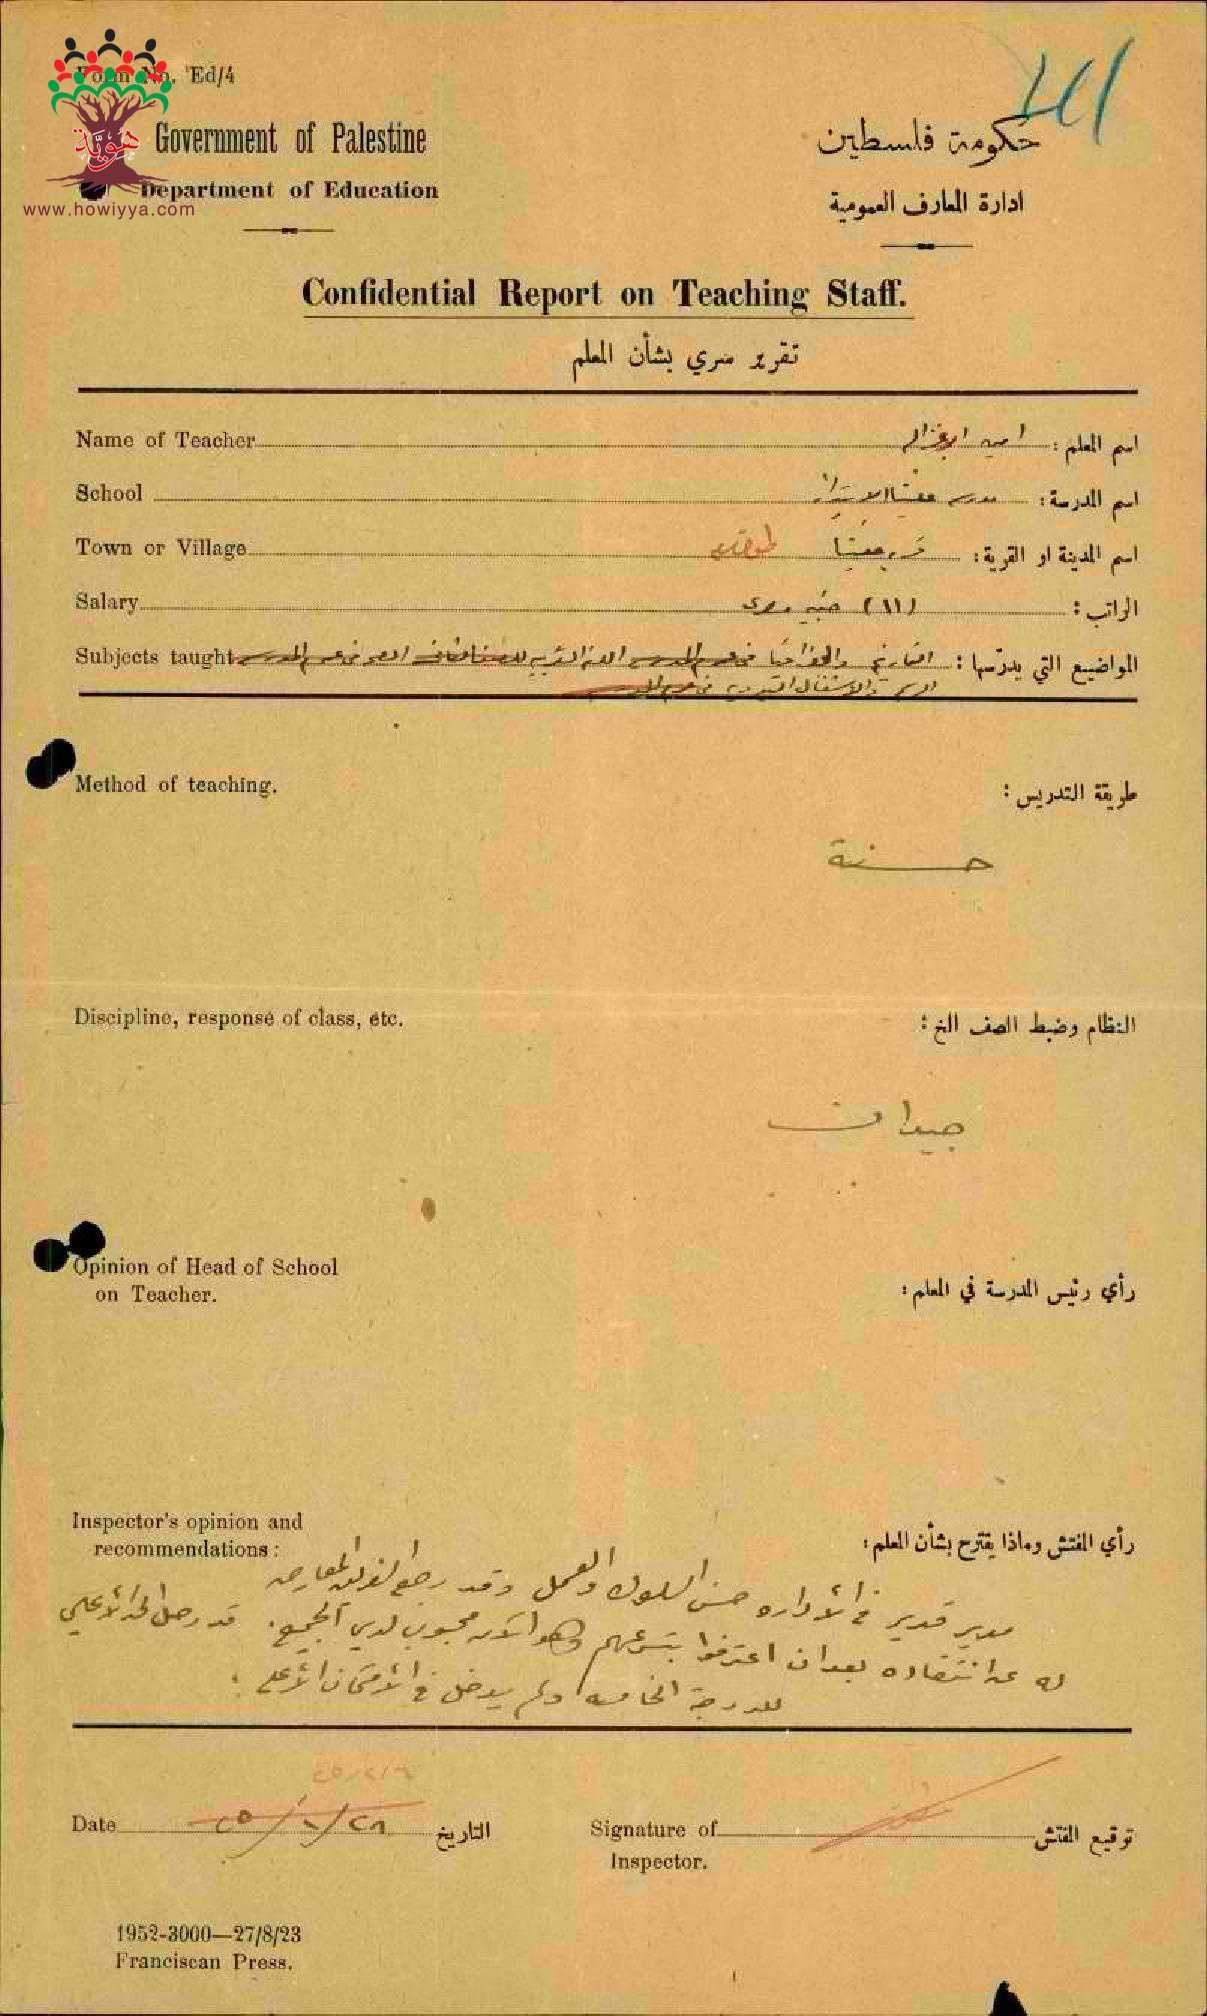 Form No. Ed/4
هوية
www.howiyya.com
Government of Palestine
Department of Education
حكومة فلسطين
ادارة المعارف العمومية
Confidential Report on Teaching Staff.
تقرير سري بشأن المعلم
Name of Teacher امين ابو غزاله اسم المعلم :
School مدرسة الابتدائية اسم المدرسة :
Town or Village قرية اسم المدينة او القرية :
Salary (١١) جنيه مصري الراتب :
Subjects taught المواضيع التي يدرّسها :
Method of teaching. طريقة التدريس :
حسنة
Discipline, response of class, etc. النظام وضبط الصف الخ :
جيدان
Opinion of Head of School
on Teacher.
رأي رئيس المدرسة في المعلم :
Inspector's opinion and
recommendations :
رأي المفتش وماذا يقترح بشأن المعلم :
مدير قدير في الأداره حسن السلوك والعمل وقد رجع الفريق المعارض
له عن انتقاده بعد ان اعترفوا بتسرعهم وهو الآن محبوب لدى الجميع. قد وصل الحد الأعلى
للدرجة الخامسة ولم يدخل في الأمتحان الأعلى .
Date ٢٥/١/٢٨ التاريخ
Signature of
Inspector.
توقيع المفتش
1952-3000—27/8/23
Franciscan Press.